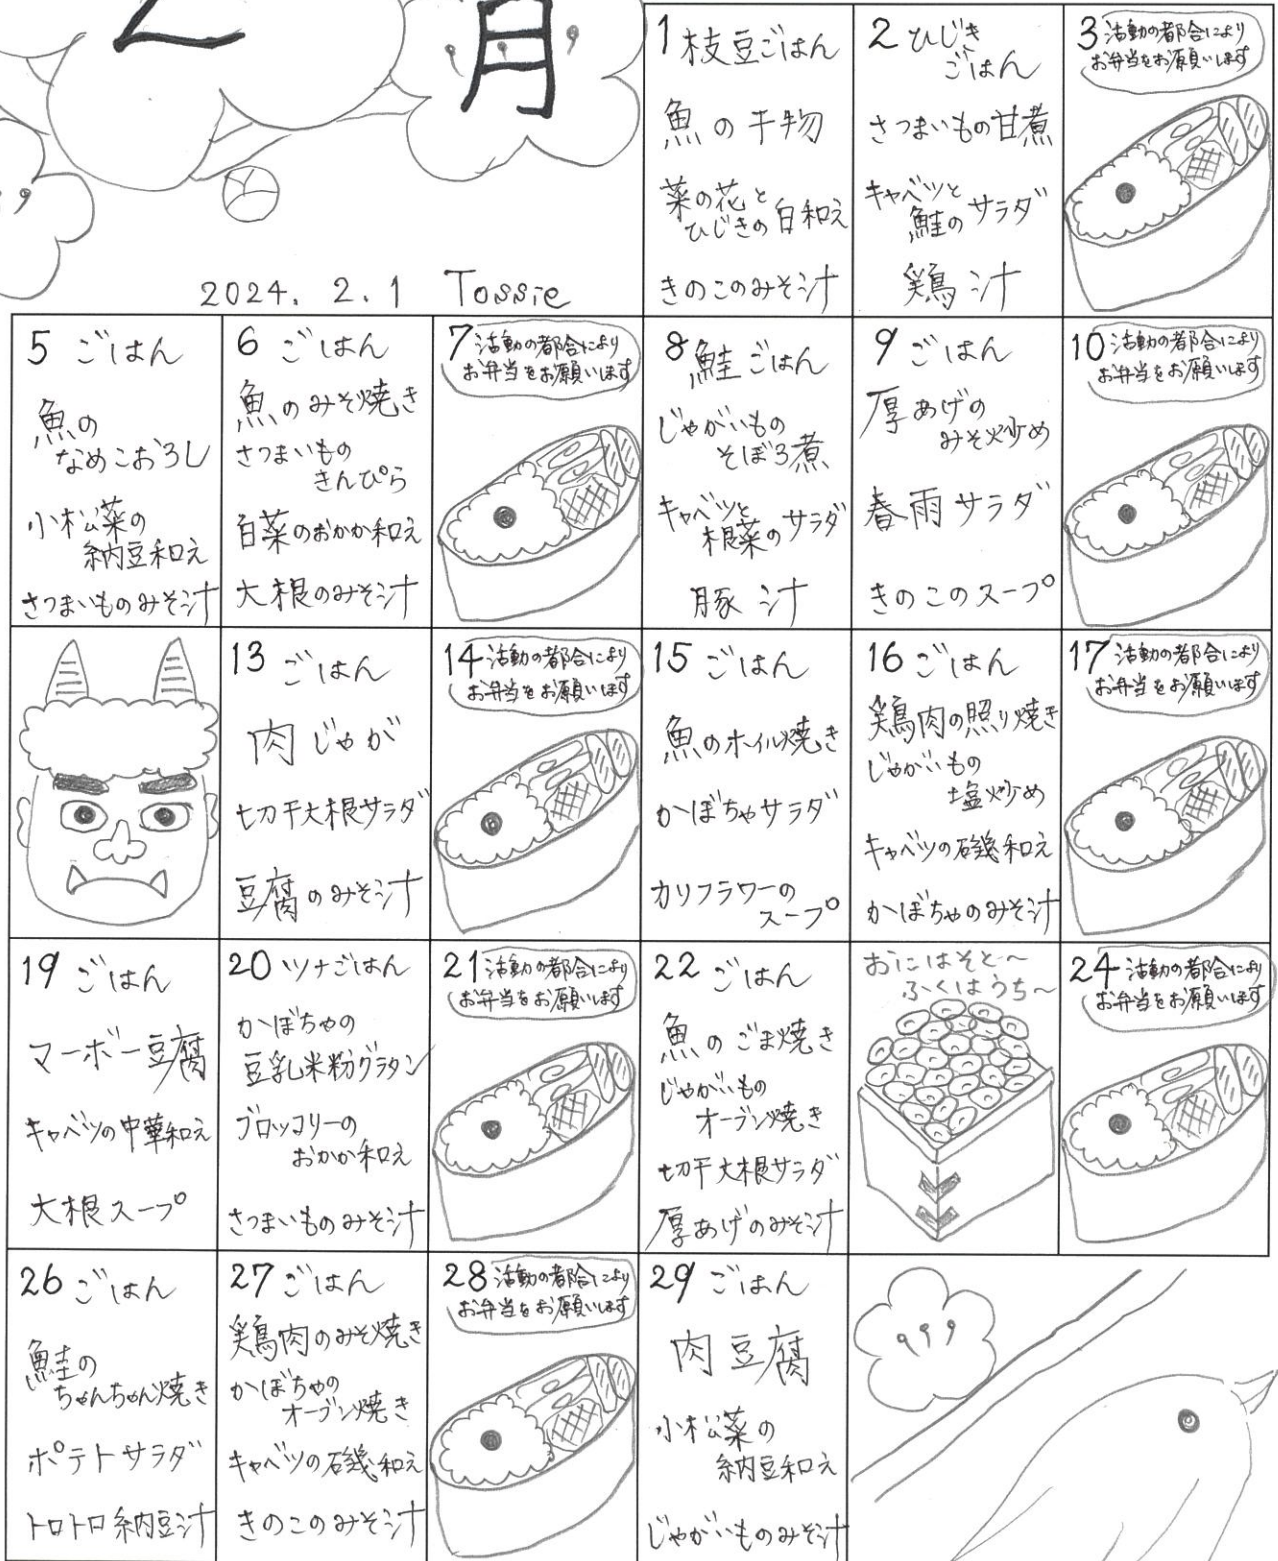 2月
2024. 2. 1 Tossie
1 枝豆ごはん
魚の干物
菜の花と
ひじきの白和え
きのこのみそ汁
2 ひじき
ごはん
さつまいもの甘煮
キャベツと
鮭のサラダ
鶏汁
3 活動の都合により
お弁当をお願いします
5 ごはん
魚の
なめこおろし
小松菜の
納豆和え
さつまいものみそ汁
6 ごはん
魚のみそ焼き
さつまいもの
きんぴら
白菜のおかか和え
大根のみそ汁
7 活動の都合により
お弁当をお願いします
8 鮭ごはん
じゃがいもの
そぼろ煮
キャベツと
根菜のサラダ
豚汁
9 ごはん
厚あげの
みそ炒め
春雨サラダ
きのこのスープ
10 活動の都合により
お弁当をお願いします
13 ごはん
肉じゃが
切干大根サラダ
豆腐のみそ汁
14 活動の都合により
お弁当をお願いします
15 ごはん
魚のホイル焼き
かぼちゃサラダ
カリフラワーの
スープ
16 ごはん
鶏肉の照り焼き
じゃがいもの
塩炒め
キャベツの磯和え
かぼちゃのみそ汁
17 活動の都合により
お弁当をお願いします
19 ごはん
マーボー豆腐
キャベツの中華和え
大根スープ
20 ツナごはん
かぼちゃの
豆乳米粉グラタン
ブロッコリーの
おかか和え
さつまいものみそ汁
21 活動の都合により
お弁当をお願いします
22 ごはん
魚のごま焼き
じゃがいもの
オーブン焼き
切干大根サラダ
厚あげのみそ汁
おにはそと〜
ふくはうち〜
24 活動の都合により
お弁当をお願いします
26 ごはん
鮭の
ちゃんちゃん焼き
ポテトサラダ
トロトロ納豆汁
27 ごはん
鶏肉のみそ焼き
かぼちゃの
オーブン焼き
キャベツの磯和え
きのこのみそ汁
28 活動の都合により
お弁当をお願いします
29 ごはん
肉豆腐
小松菜の
納豆和え
じゃがいものみそ汁